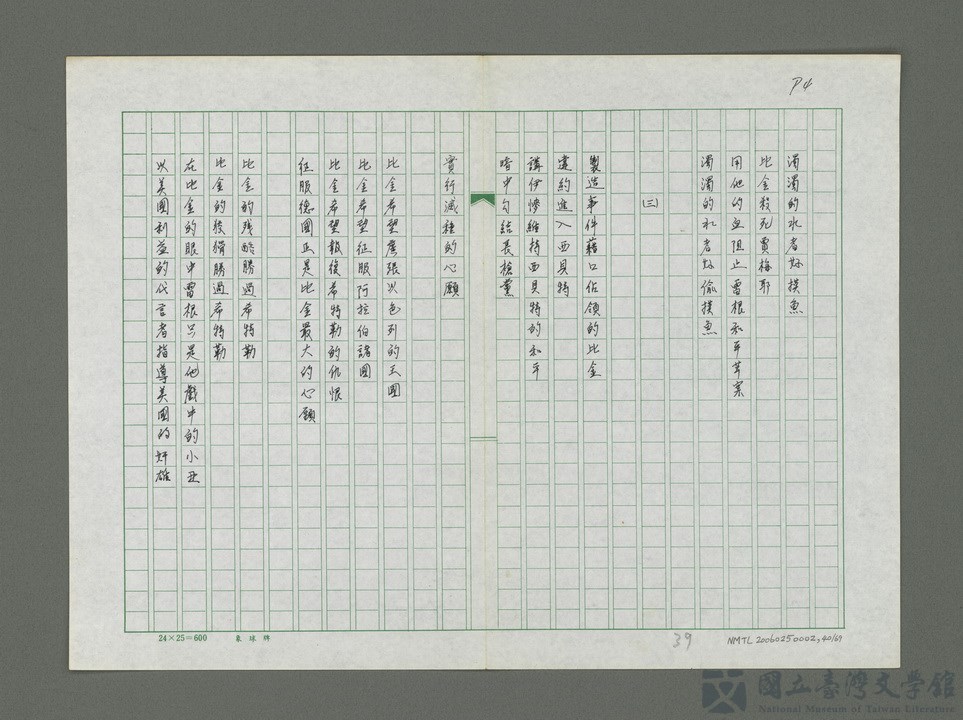 P4
濁濁的水者好摸魚
比金殺死賈梅耶
用他的血阻止雷根和平草案
濁濁的水者好偷摸魚
(三)
製造事件藉口佔領的比金
違約進入西貝特
講伊慘維持西貝特的和平
暗中勾結長槍黨
實行滅種的心願
比金希望擴張以色列的王國
比金希望征服阿拉伯諸國
比金希望報復希特勒的仇恨
征服德國正是比金最大的心願
比金的殘酷勝過希特勒
比金的狡猾勝過希特勒
在比金的眼中雷根只是他戲中的小丑
以美國利益的代言者指導美國的奸雄
24×25=600 象球牌
39
NMTL 20060250002, 40/69
國立臺灣文學館
National Museum of Taiwan Literature